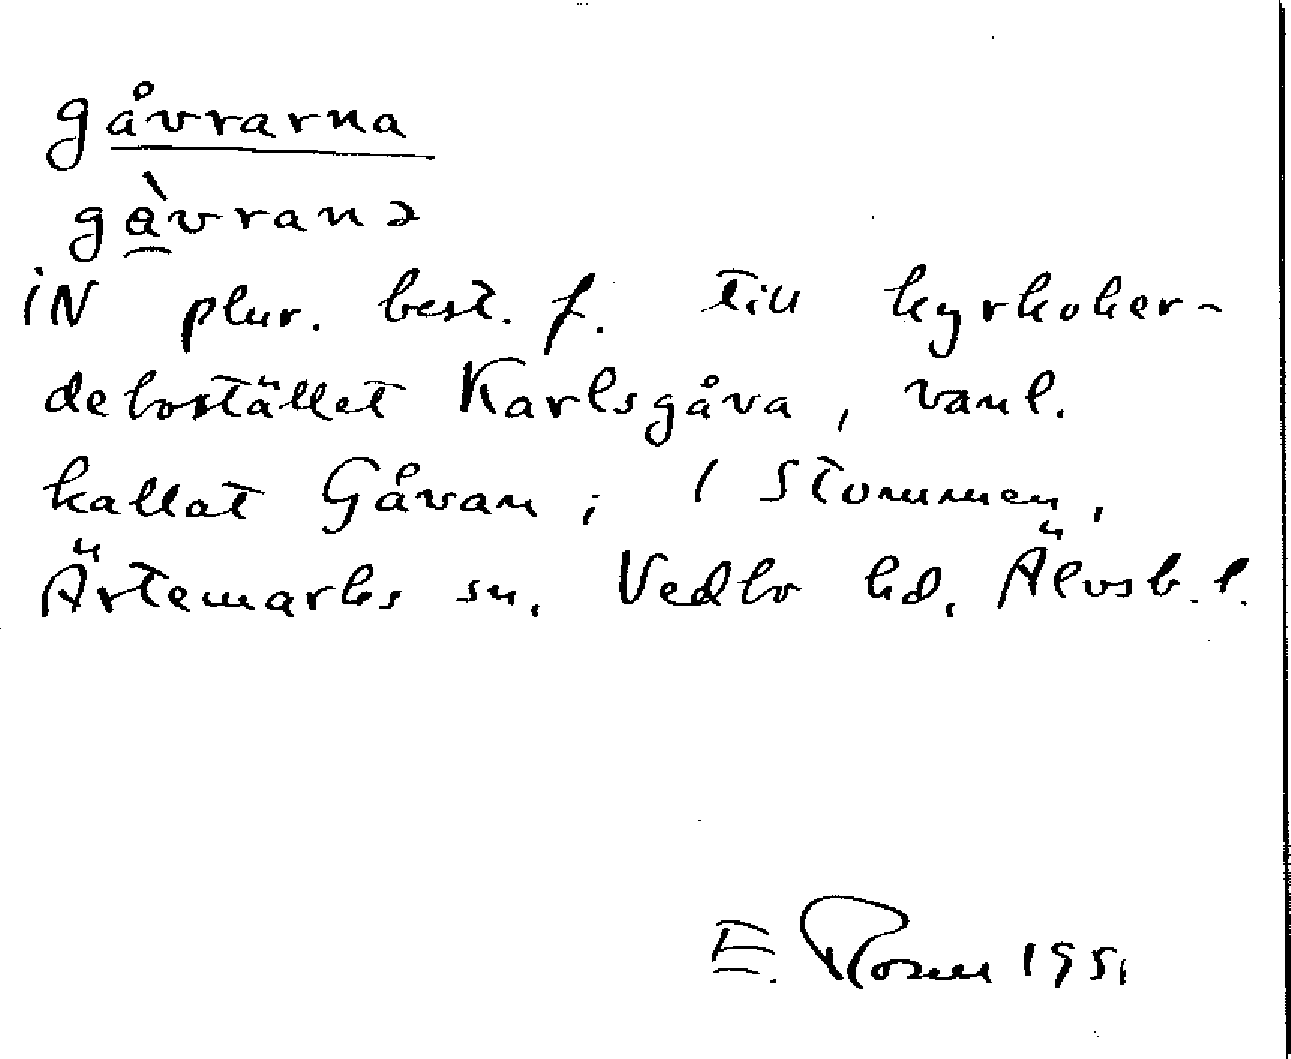 gåvrarna
gàvranə
iN plur. best. f. till kyrkoher-
debostället Karlsgåva, vanl.
kallat Gåvan; i Stommen,
Ärtemarks sn, Vedbo hd, Älvsb. l.
E. Rosen 1951